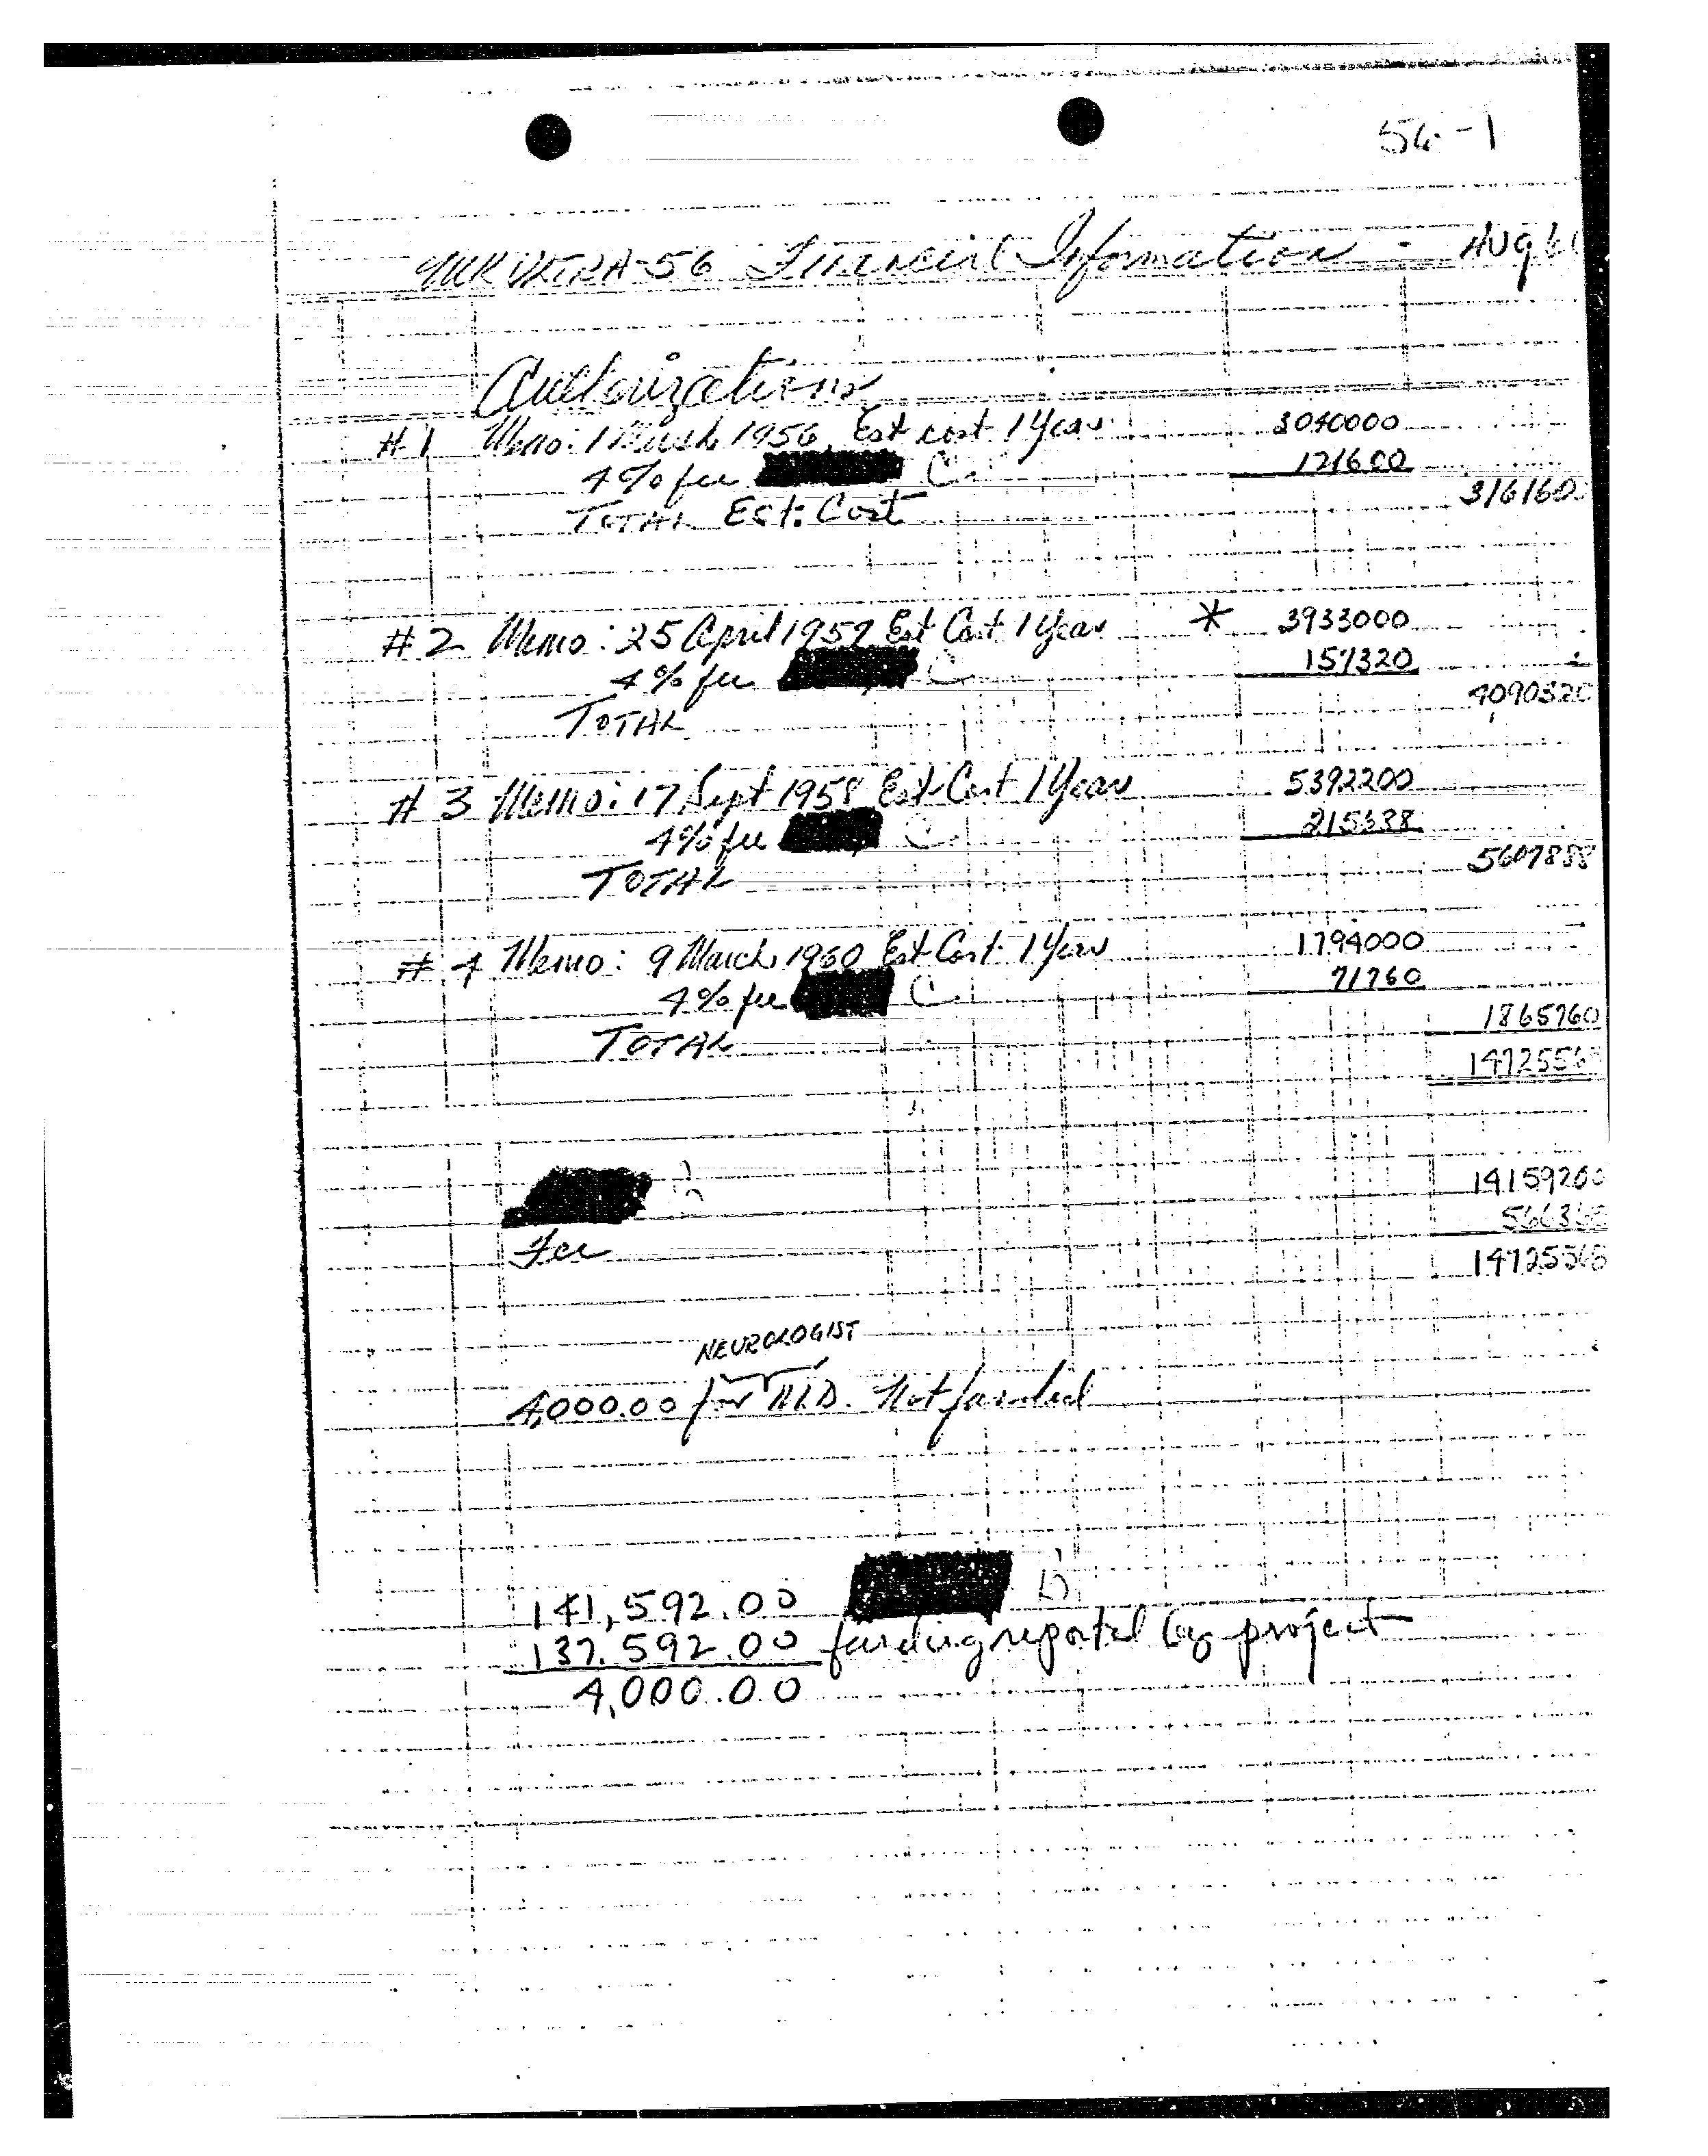 56-1
MKULTRA-56 Financial Information - AUG 6
Authorizations
#1 Memo: 1 March 1956, Est cost 1 Year 3040000
4% fee C 121600
TOTAL Est: Cost 3161600
#2 Memo: 25 April 1957 Est Cost 1 Year * 3933000
4% fee C 157320
TOTAL 4090320
#3 Memo: 17 Sept 1958 Est Cost 1 Year 5392200
4% fee C 215688
TOTAL 5607888
#4 Memo: 9 March 1960 Est Cost 1 Year 1794000
4% fee C 71760
TOTAL 1865760
14725568
14159200
Fee 566368
14725568
NEUROLOGIST
4,000.00 for M.D. Not funded
141,592.00
137,592.00 funding reported by project
4,000.00